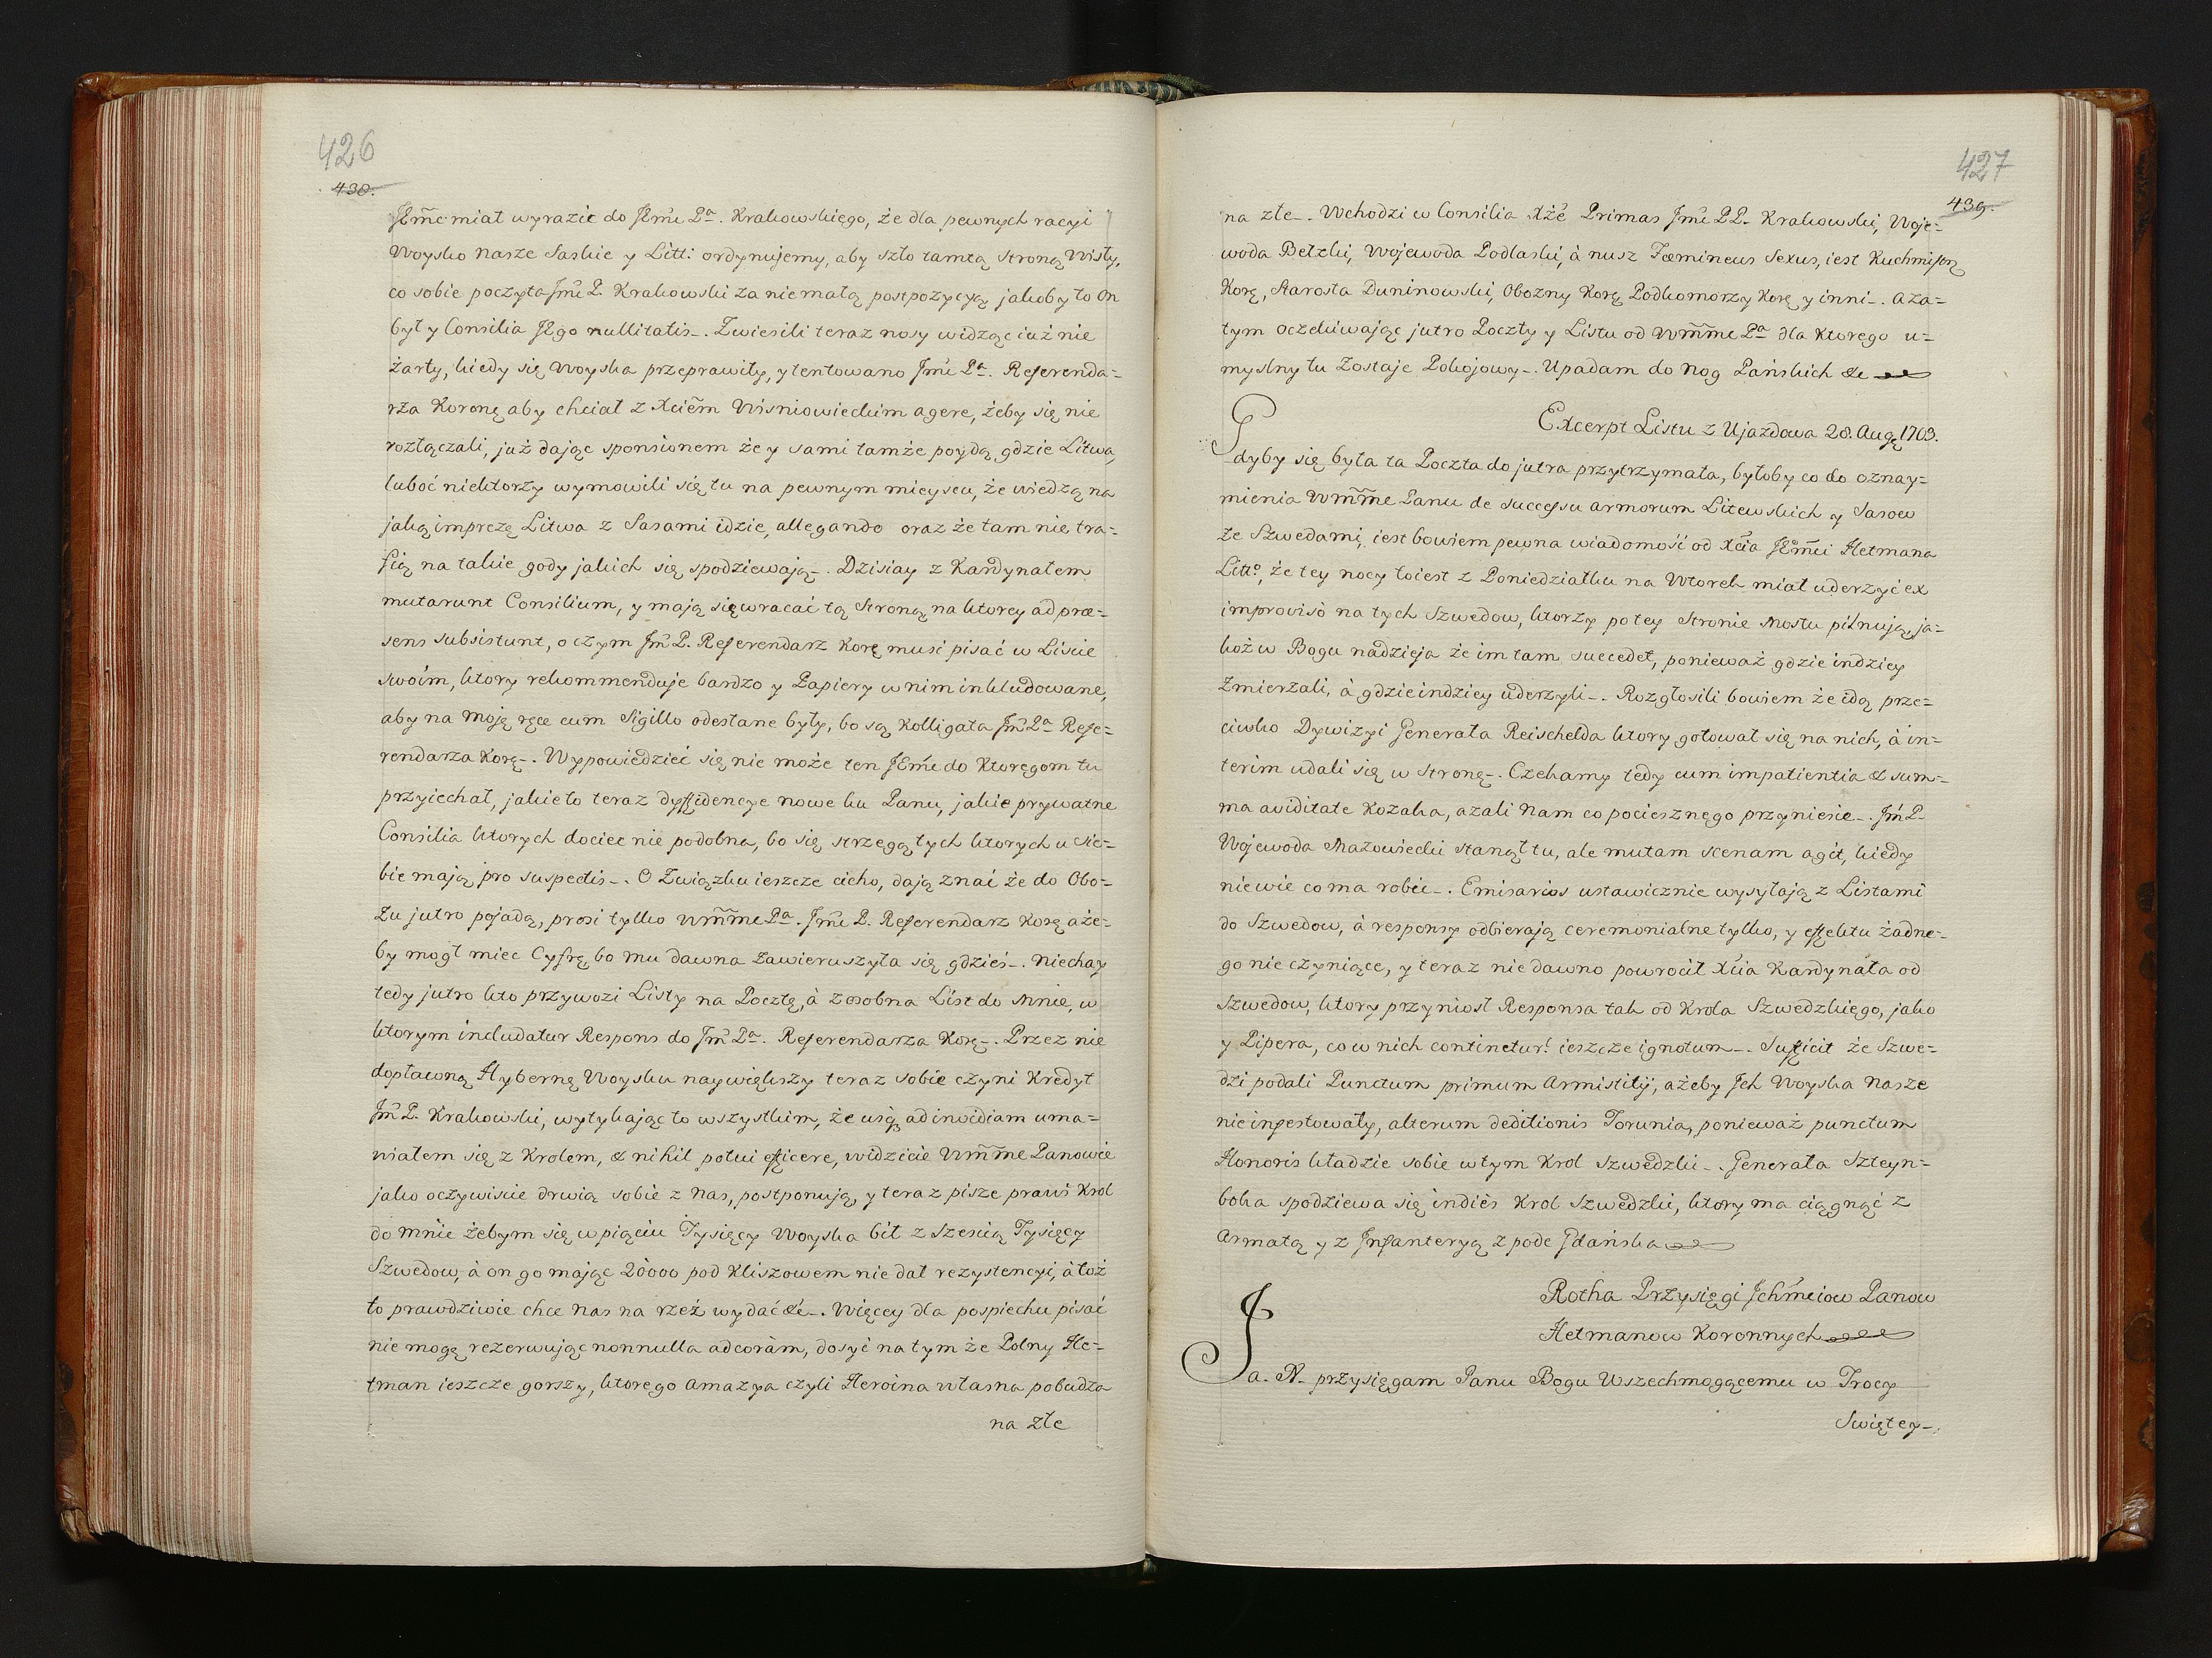 426
430.
JEm̃c miał wyrazić do JEmći Pª. Krakowskięgo, że dla pewnych racyi
Woysko nasze Saskie y Litt: ordynujemy, aby szło tamtą stroną Wisły,
co sobie poczyta Jmći P. Krakowski za niemałą postpozycyą jakoby to on
był y Consilia JEgo nullitatis_. Zwiesili teraz nosy widząc iuż nie
żarty, kiedy się Woyska przeprawiły, y tentowano Jmći Pª. Referenda=
rza Koronę aby chciał z Xcięm Wisniowieckim agere, żeby się nie
rozłączali, już dając sponsionem że y sami tamże poydą gdzie Litwa,
luboć niektorzy wymowili się tu na pewnym mieyscu, że wiedzą na
jaką imprezę Litwa z Sasami idzie, allegando oraz że tam nie tra=
fią na takie gody jakich się spodziewają_. Dzisiay z Kardynałem
mutarunt Consilium, y mają się wracać tą stroną na ktorey ad præ=
sens subsistunt, o czym Jm̃ P. Referendarz Korę musi pisać w Liscie
swoim, ktory rekommenduje bardzo y Papiery w nim inkludowane,
aby na moję ręce cum Sigillo odesłane były, bo są Kolligata Jm̃ Pª Refe=
rendarza Korę_. Wypowiedzieć się nie może ten JEmći do Ktoręgom tu
przyiechał, jakieto teraz dyffidencye nowe ku Panu, jakie prywatne
Consilia ktorych dociec nie podobna, bo się strzegą tych ktorych u sie=
bie mają pro suspectis_. O Związku ieszcze cicho, dają znać że do Obo=
zu jutro pojadą, prosi tylko Wm̃m̃e Pª. Jmći P. Referendarz Korę aże=
by mogł miec Cyfrę bo mu dawna zawieruszyła się gdzieś_. Niechay
tedy jutro kto przywozi Listy na Pocztę, à zosobna List do Mnie, w
ktorym includatur Respons do Jm̃ Pª. Referendarza Korę_. Przez nie
dopławną Hybernę Woysku naywiększy teraz sobie czyni Kredyt
Jm̃ P. Krakowski, wytykając to wszystkim, że usq₃ ad invidiam uma=
wiałem się z Krolem, & nihil potui efficere, widzicie Wm̃m̃e Panowie
jako oczywiscie drwią sobie z nas, postponują, y teraz pisze prawi Krol
do mnie żebym się w pięciu Tysięcy Woyska bił z szescią Tysięcy
Szwedow, à on go mając 20000 pod Kliszowem nie dał rezystencyi, à toż
to prawdziwie chce nas na rzeź wydać &c_. Więcey dla pospiechu pisać
nie mogę rezerwując nonnulla ad coràm, dosyć na tym że Polny He=
tman ieszcze gorszy, ktorego Amazya czyli Heroina własna pobudza
na złe
427
439.
na złe_. Wchodzi w Consilia Xżę Primas Jmći PP. Krakowski, Woje=
woda Bełzki, Wojewoda Podlaski, à nusz Fœmineus Sexus, iest Kuchmistrz
Korę, Starosta Duninowski, Obozny Korę Podkomorzy Korę y inni_. A za=
tym oczekiwając jutro Poczty y Listu od Wm̃m̃e Pª dla ktorego u=
myslny tu zostaje Pokojowy_. Upadam do Nog Pańskich &c
Excerpt Listu z Ujazdowa 28. Augę 1703.
Gdyby się była ta Poczta do jutra przytrzymała, byłoby co do oznay=
mienia Wm̃m̃e Panu de successu armorum Litewskich y Sasow
ze Szwedami, iest bowiem pewna wiadomość od Xcia JEm̃ci Hetmana
Litt°, że tey nocy toiest z Poniedziałku na Wtorek miał uderzyć ex
improviso na tych Szwedow, ktorzy po tey stronie Mostu pilnują, ja=
koż w Bogu nadzieja że im tam succedet, ponieważ gdzie indziey
zmierzali, à gdzieindziey uderzyli_. Rozgłosili bowiem że idą prze=
ciwko Dywizyi Generała Reischelda ktory gotował się na nich, à in=
terim udali się w stronę_. Czekamy tedy cum impatientia & sum=
ma aviditate Kozaka, azali nam co pociesznęgo przyniesie_. Jm̃ P.
Wojewoda Mazowiecki stanął tu, ale mutam scenam agit, kiedy
niewie co ma robić_. Emisarios ustawicznie wysyłają z Listami
do Szwedow, à responsy odbierają ceremonialne tylko, y effektu żadne=
go nie czyniące, y teraz nie dawno powrocił Xcia Kardynała od
Szwedow, ktory przyniosł Responsa tak od Krola Szwedzkięgo, jako
y Pipera, co w nich continetur! ieszcze ignotum_. Sufficit że Szwe=
dzi podali Punctum primum Armistitij, ażeby Jch Woyska nasze
nie infestowały, alterum deditionis Torunia, ponieważ punctum
Honoris kładzie sobie w tym Krol Szwedzki_. Generała Szteyn=
boka spodziewa się indiès Krol Szwedzki, ktory ma ciągnąć z
Armatą y z Jnfanteryą z pode Gdańska
Rotha Przysięgi Jchm̃ciow Panow
Hetmanow Koronnych
Ja. N. przysięgam Panu Bogu Wszechmogącemu w Trocy
Swiętey_.